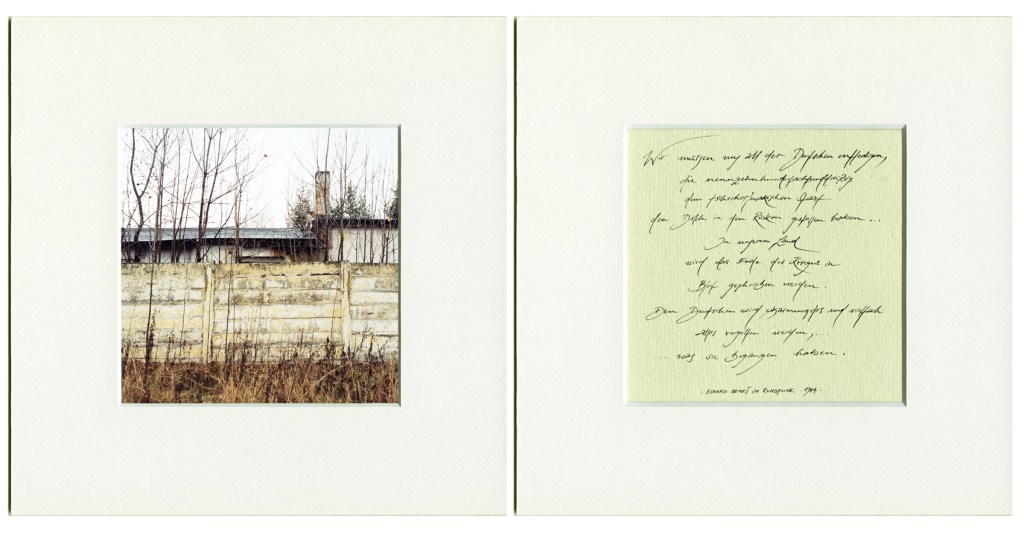 Wir müssen uns all der Deutschen entledigen,
die
dem tschechoslowakischen Staat
den Dolch in den Rücken gestoßen haben ...
In unserem Land
wird das Ende des Krieges in
Blut geschrieben werden.
Den Deutschen wird erbarmungslos und vielfach
alles vergolten werden, ...
... was sie begangen haben.
EDVARD BENEŠ IM RUNDFUNK 1944